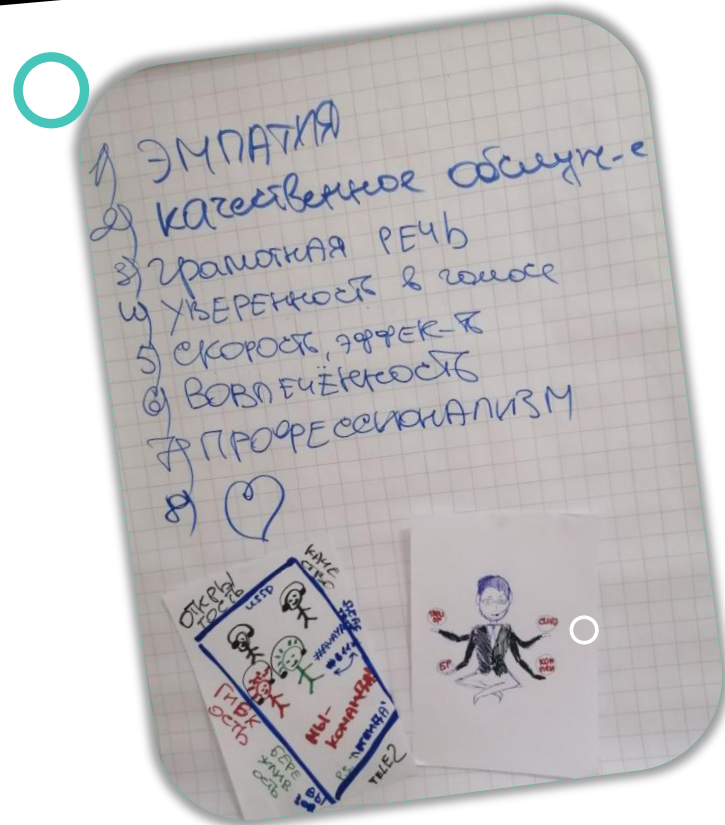 1) ЭМПАТИЯ
2) качественное обслуж-е
3) грамотная РЕЧЬ
4) УВЕРЕННОСТЬ в голосе
5) СКОРОСТЬ, ЭФФЕК-ТЬ
6) ВОВЛЕЧЁННОСТЬ
7) ПРОФЕССИОНАЛИЗМ
8)
ОТКРЫ
ТОСТЬ
КАЧЕ
СТВО
USSD
ГИБК
ОСТЬ
МЫ-
КОМАНДА
БЕРЕ
ЖЛИВ
ОСТЬ
TELE2
БР